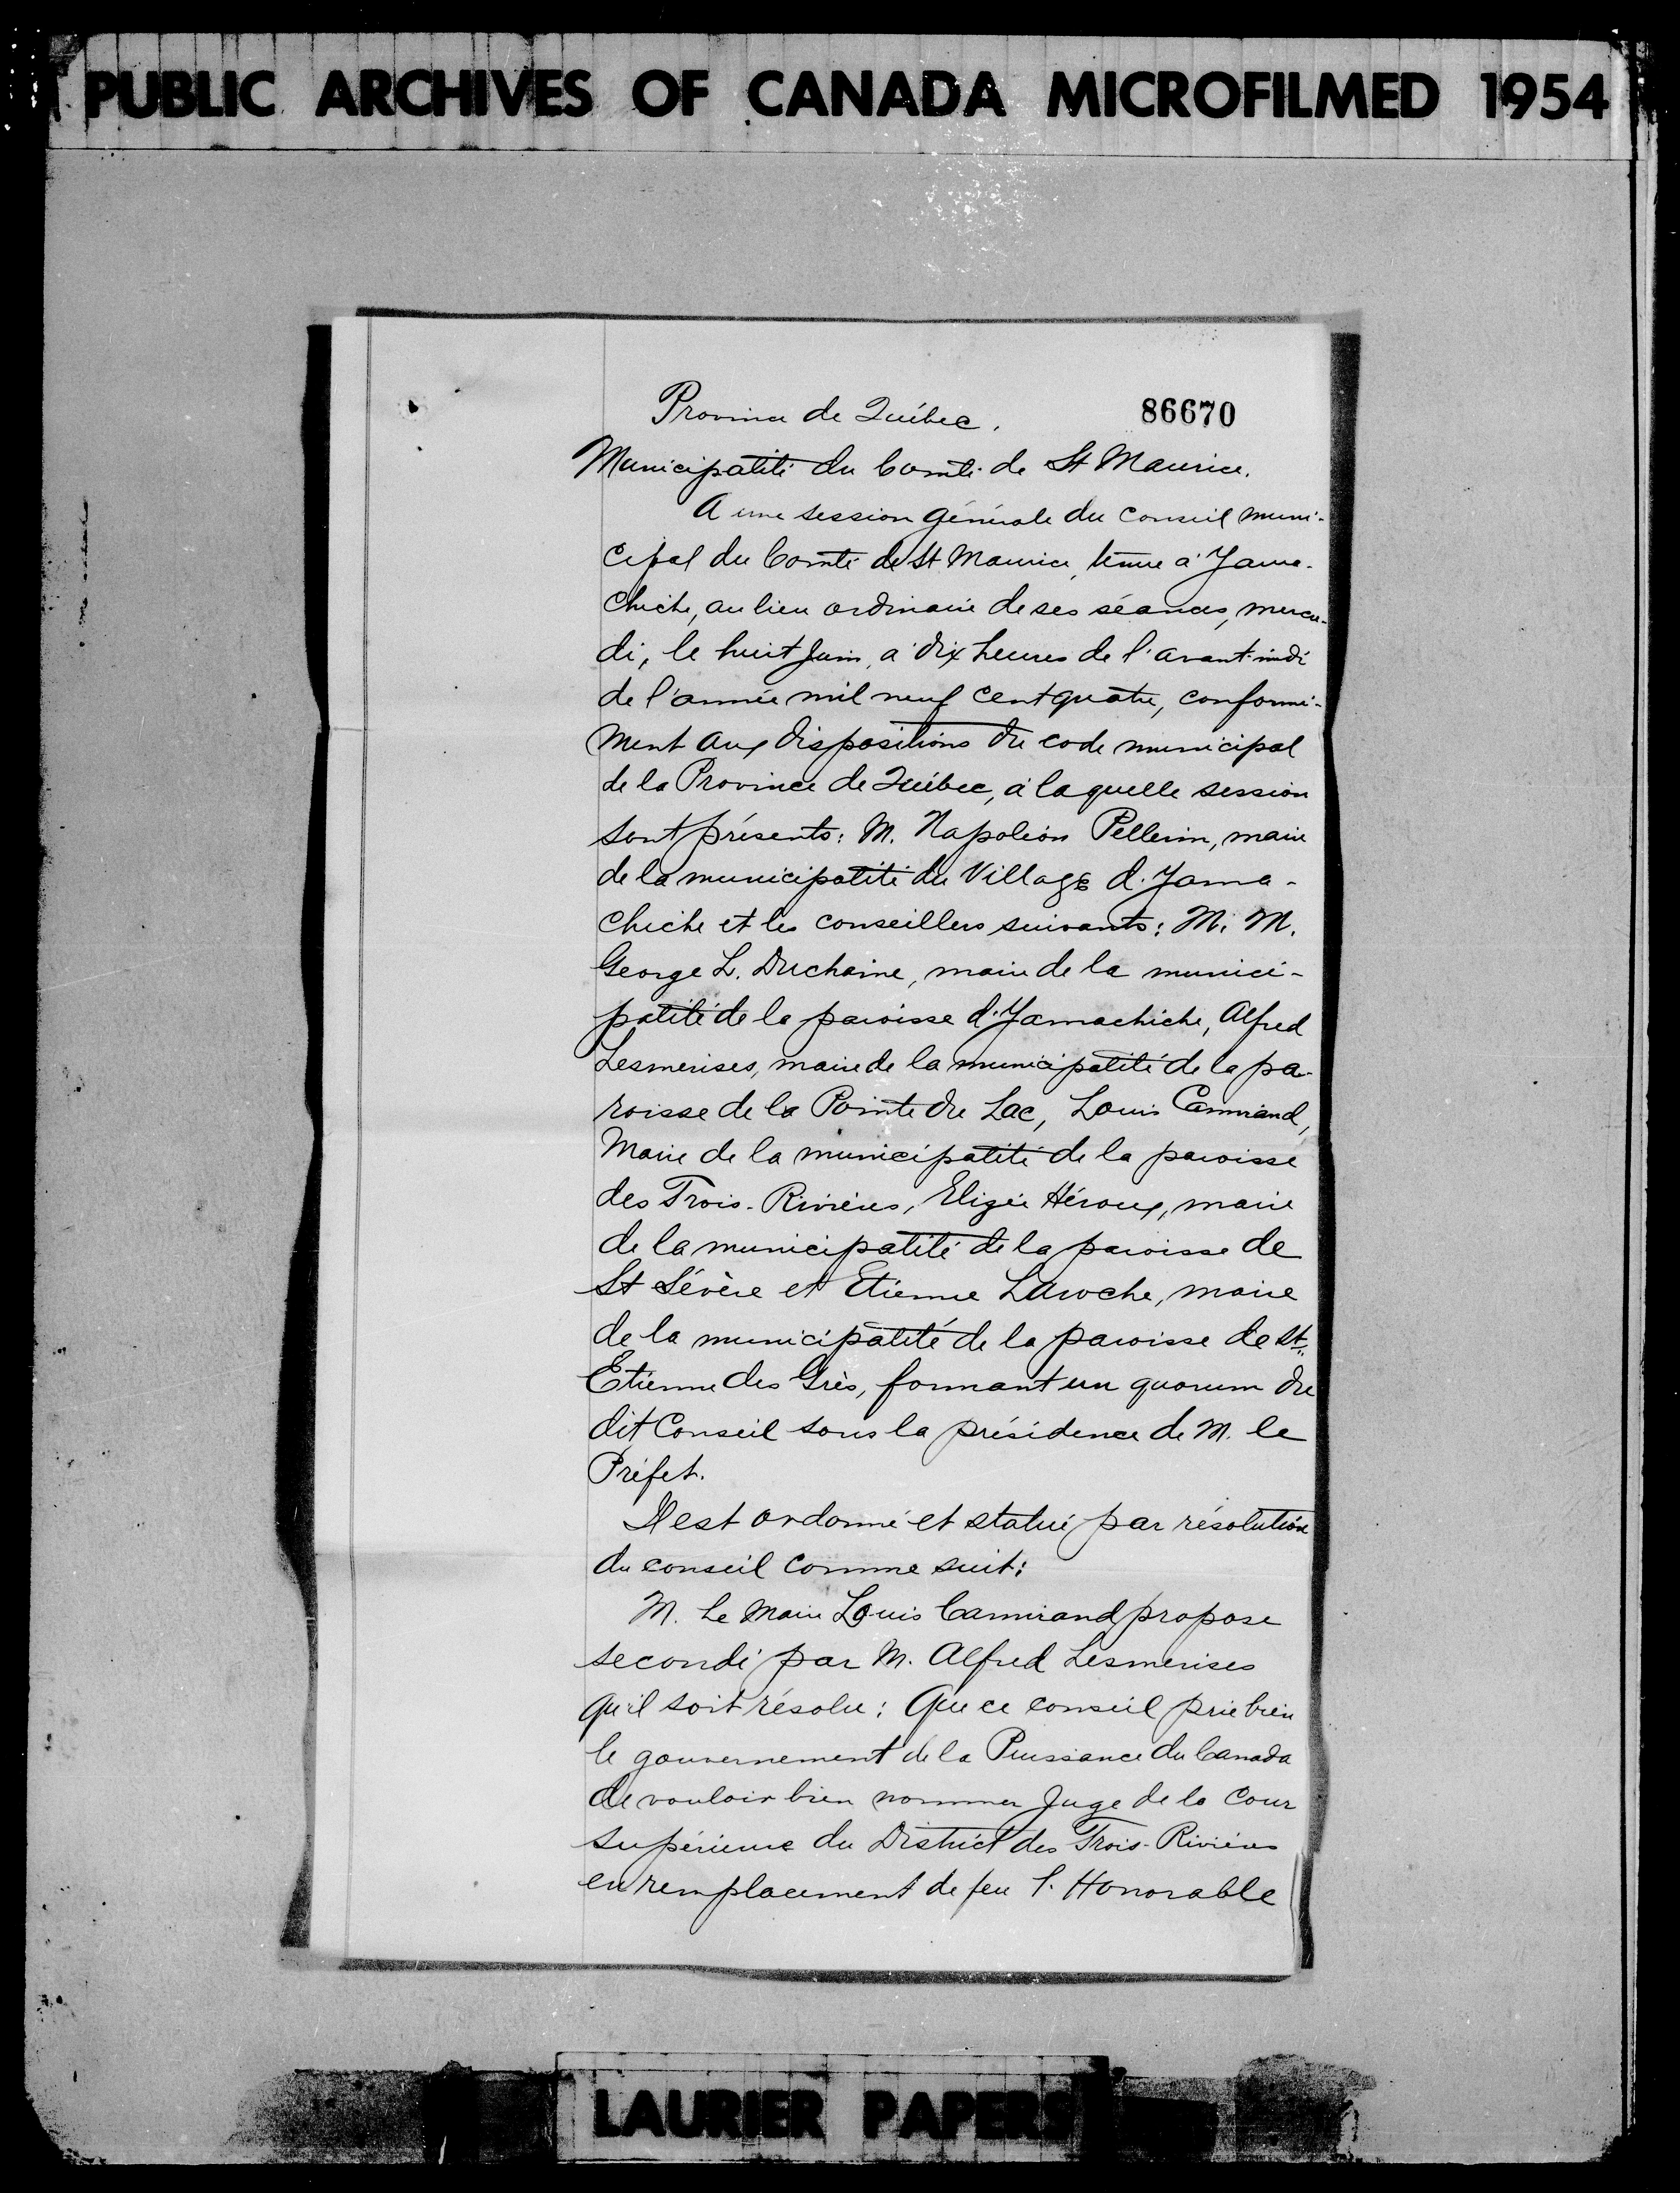 PUBLIC ARCHIVES OF CANADA MICROFILMED 1954
Province de Québec. 86670
Municipalité du Comté de St Maurice.
A une session générale du conseil muni-
cipal du Comté de St Maurice, tenue à Yama-
chiche, au lieu ordinaire de ses séances, mercre-
di, le huit Juin, à dix heures de l'avant-midi
de l'année mil neuf cent quatre, conformé-
ment aux dispositions du code municipal
de la Province de Québec, à laquelle session
sont présents: M. Napoléon Pellerin, maire
de la municipalité du Village d'Yama-
chiche et les conseillers suivants: M. M.
George L. Duchaine, maire de la munici-
palité de la paroisse d'Yamachiche, Alfred
Lesmerises, maire de la municipalité de la pa-
roisse de la Pointe du Lac, Louis Camirand,
Maire de la municipalité de la paroisse
des Trois-Rivières, Elizée Héroux, maire
de la municipalité de la paroisse de
St Sévère et Etienne Laroche, maire
de la municipalité de la paroisse de St
Etienne des Grès, formant un quorum du
dit Conseil sous la présidence de M. le
Préfet.
Il est ordonné et statué par résolution
du conseil comme suit:
M. Le Maire Louis Camirand propose
secondé par M. Alfred Lesmerises
qu'il soit résolu: Que ce conseil prie bien
le gouvernement de la Puissance du Canada
de vouloir bien nommer Juge de la Cour
supérieure du District des Trois-Rivières
en remplacement de feu l'Honorable
LAURIER PAPERS